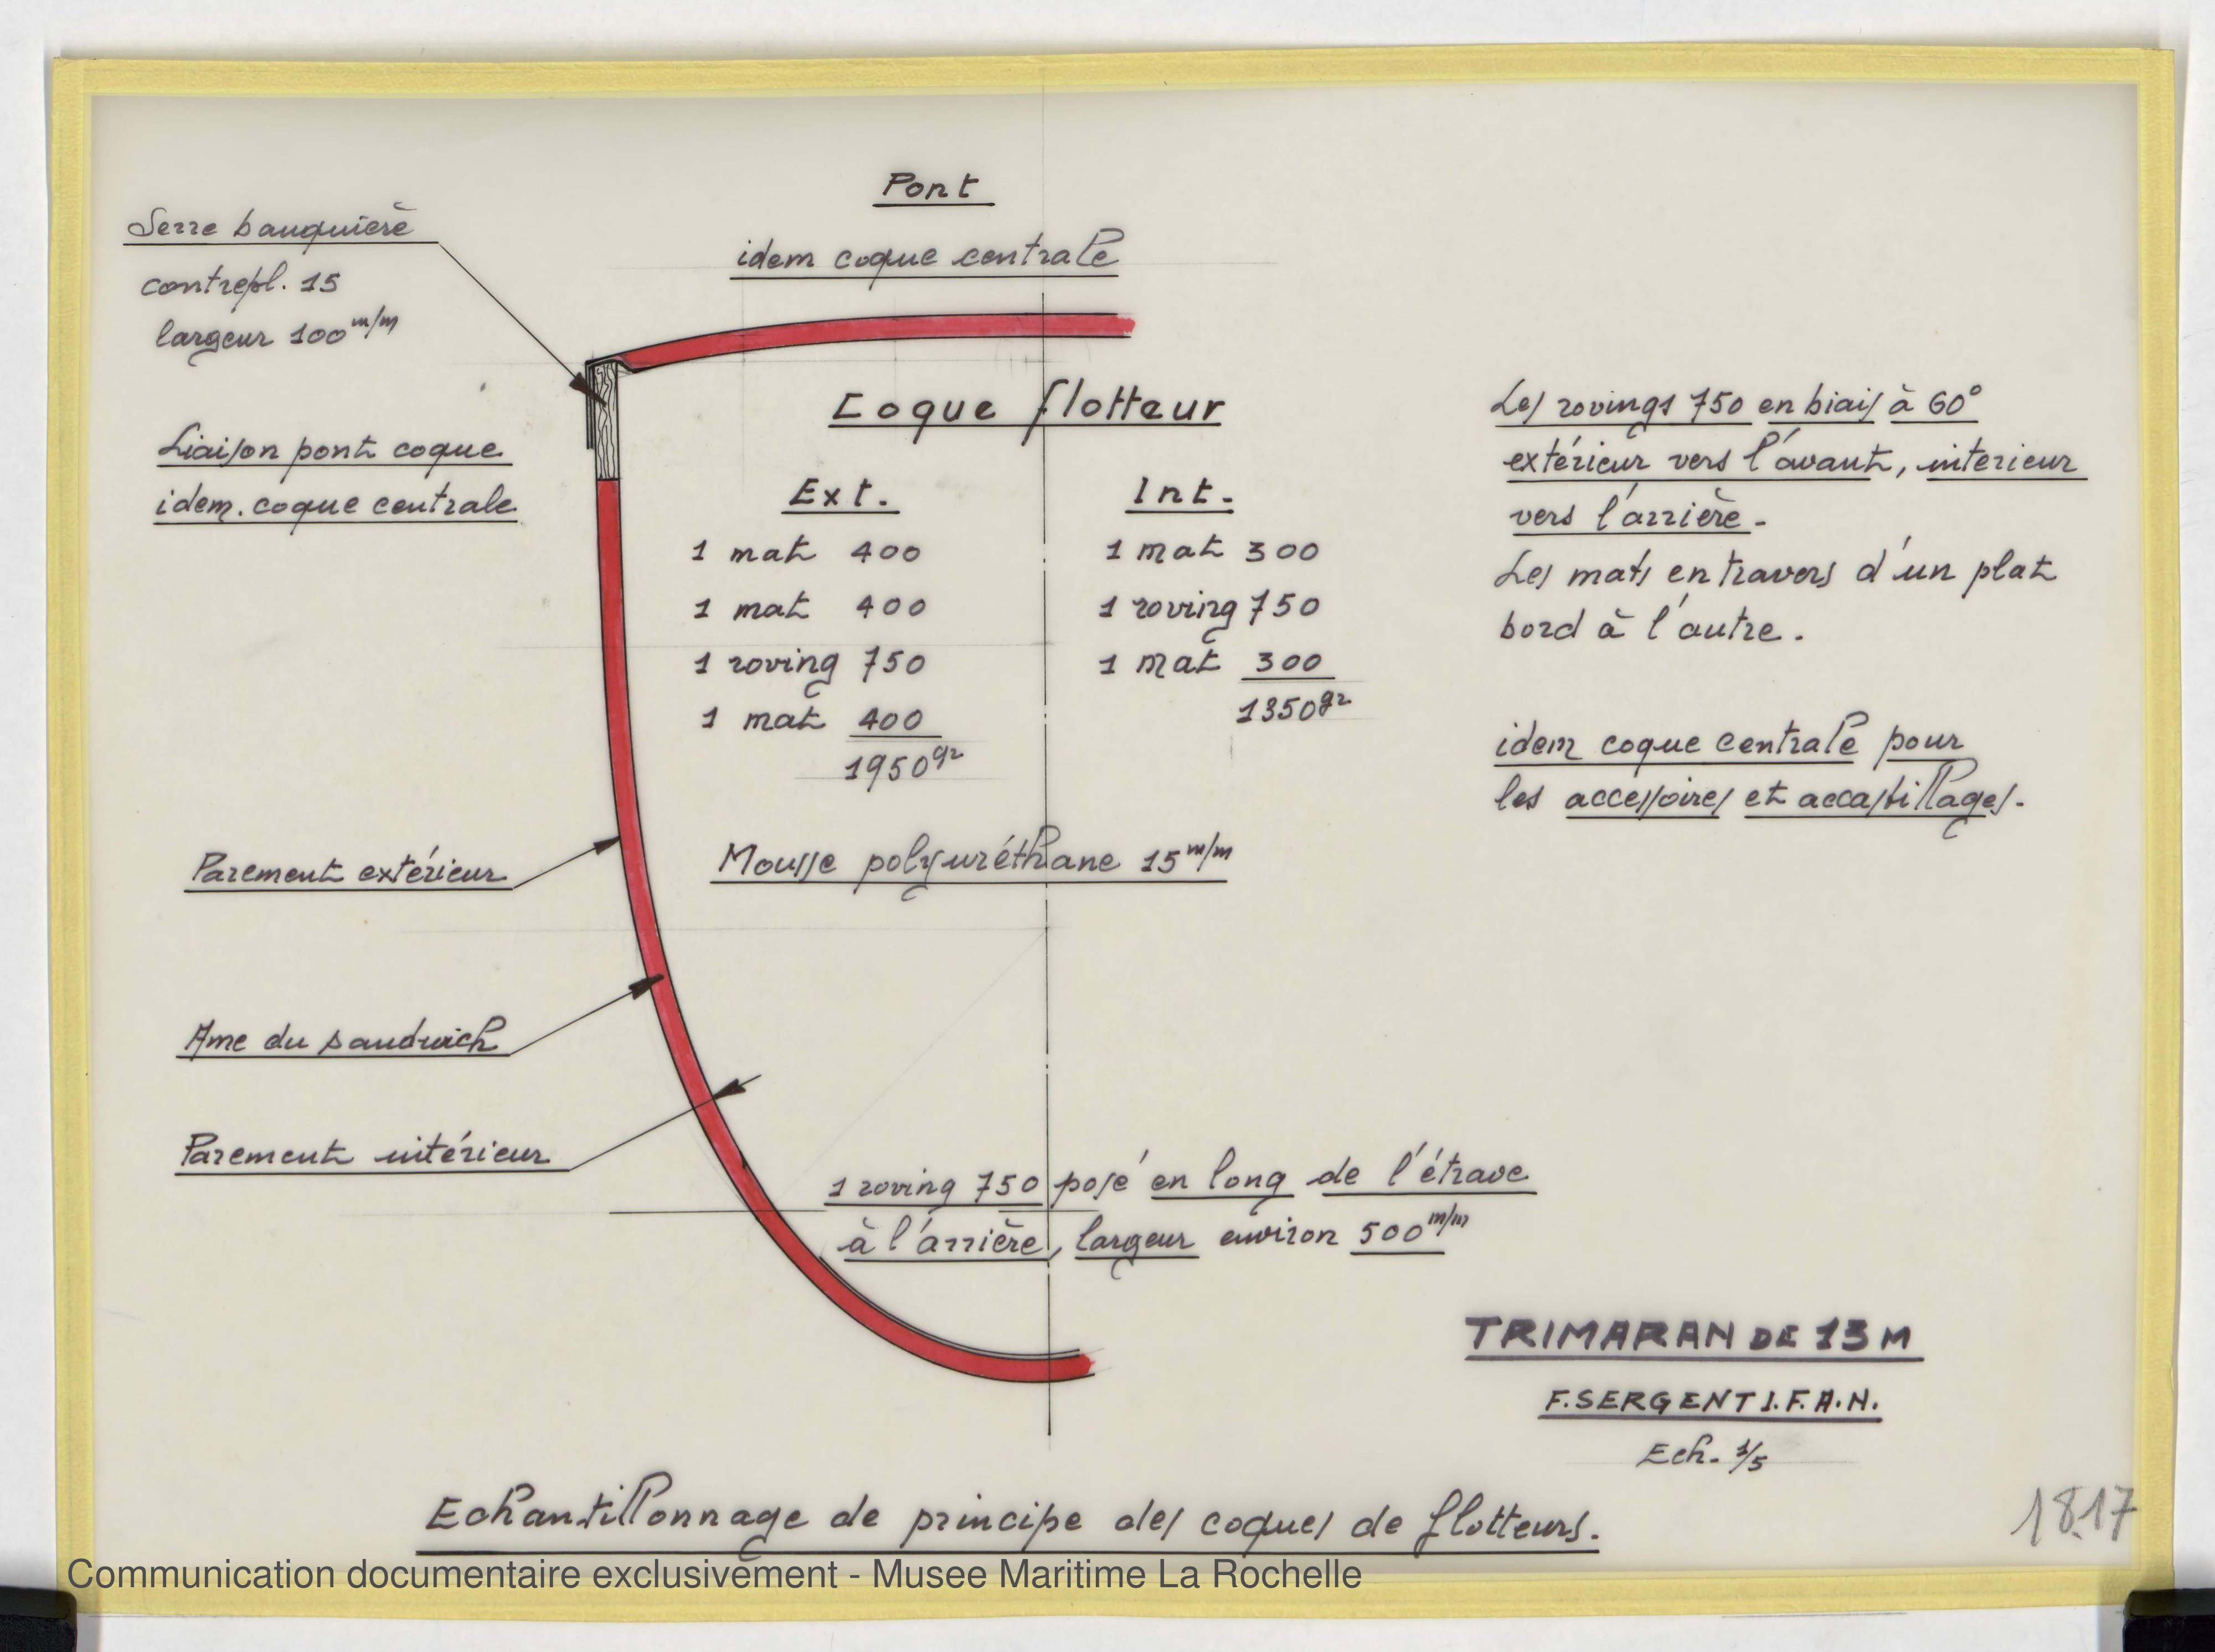 Pont
idem coque centrale
Serre bauquière
contrepl. 15
largeur 100 m/m
Liaison pont coque
idem. coque centrale
Coque flotteur
Ext.
1 mat 400
1 mat 400
1 roving 750
1 mat 400
1950 gr
Int.
1 mat 300
1 roving 750
1 mat 300
1350 gr
Mousse polyuréthane 15 m/m
Les rovings 750 en biais à 60°
extérieur vers l'avant, intérieur
vers l'arrière.
Les mats en travers d'un plat
bord à l'autre.
idem coque centrale pour
les accessoires et accastillages.
Parement extérieur
Ame du sandwich
Parement intérieur
1 roving 750 posé en long de l'étrave
à l'arrière, largeur environ 500 m/m
TRIMARAN DE 13 M
F. SERGENT I.F.A.N.
Ech. 1/5
Echantillonnage de principe des coques de flotteurs.
18.17
Communication documentaire exclusivement - Musee Maritime La Rochelle